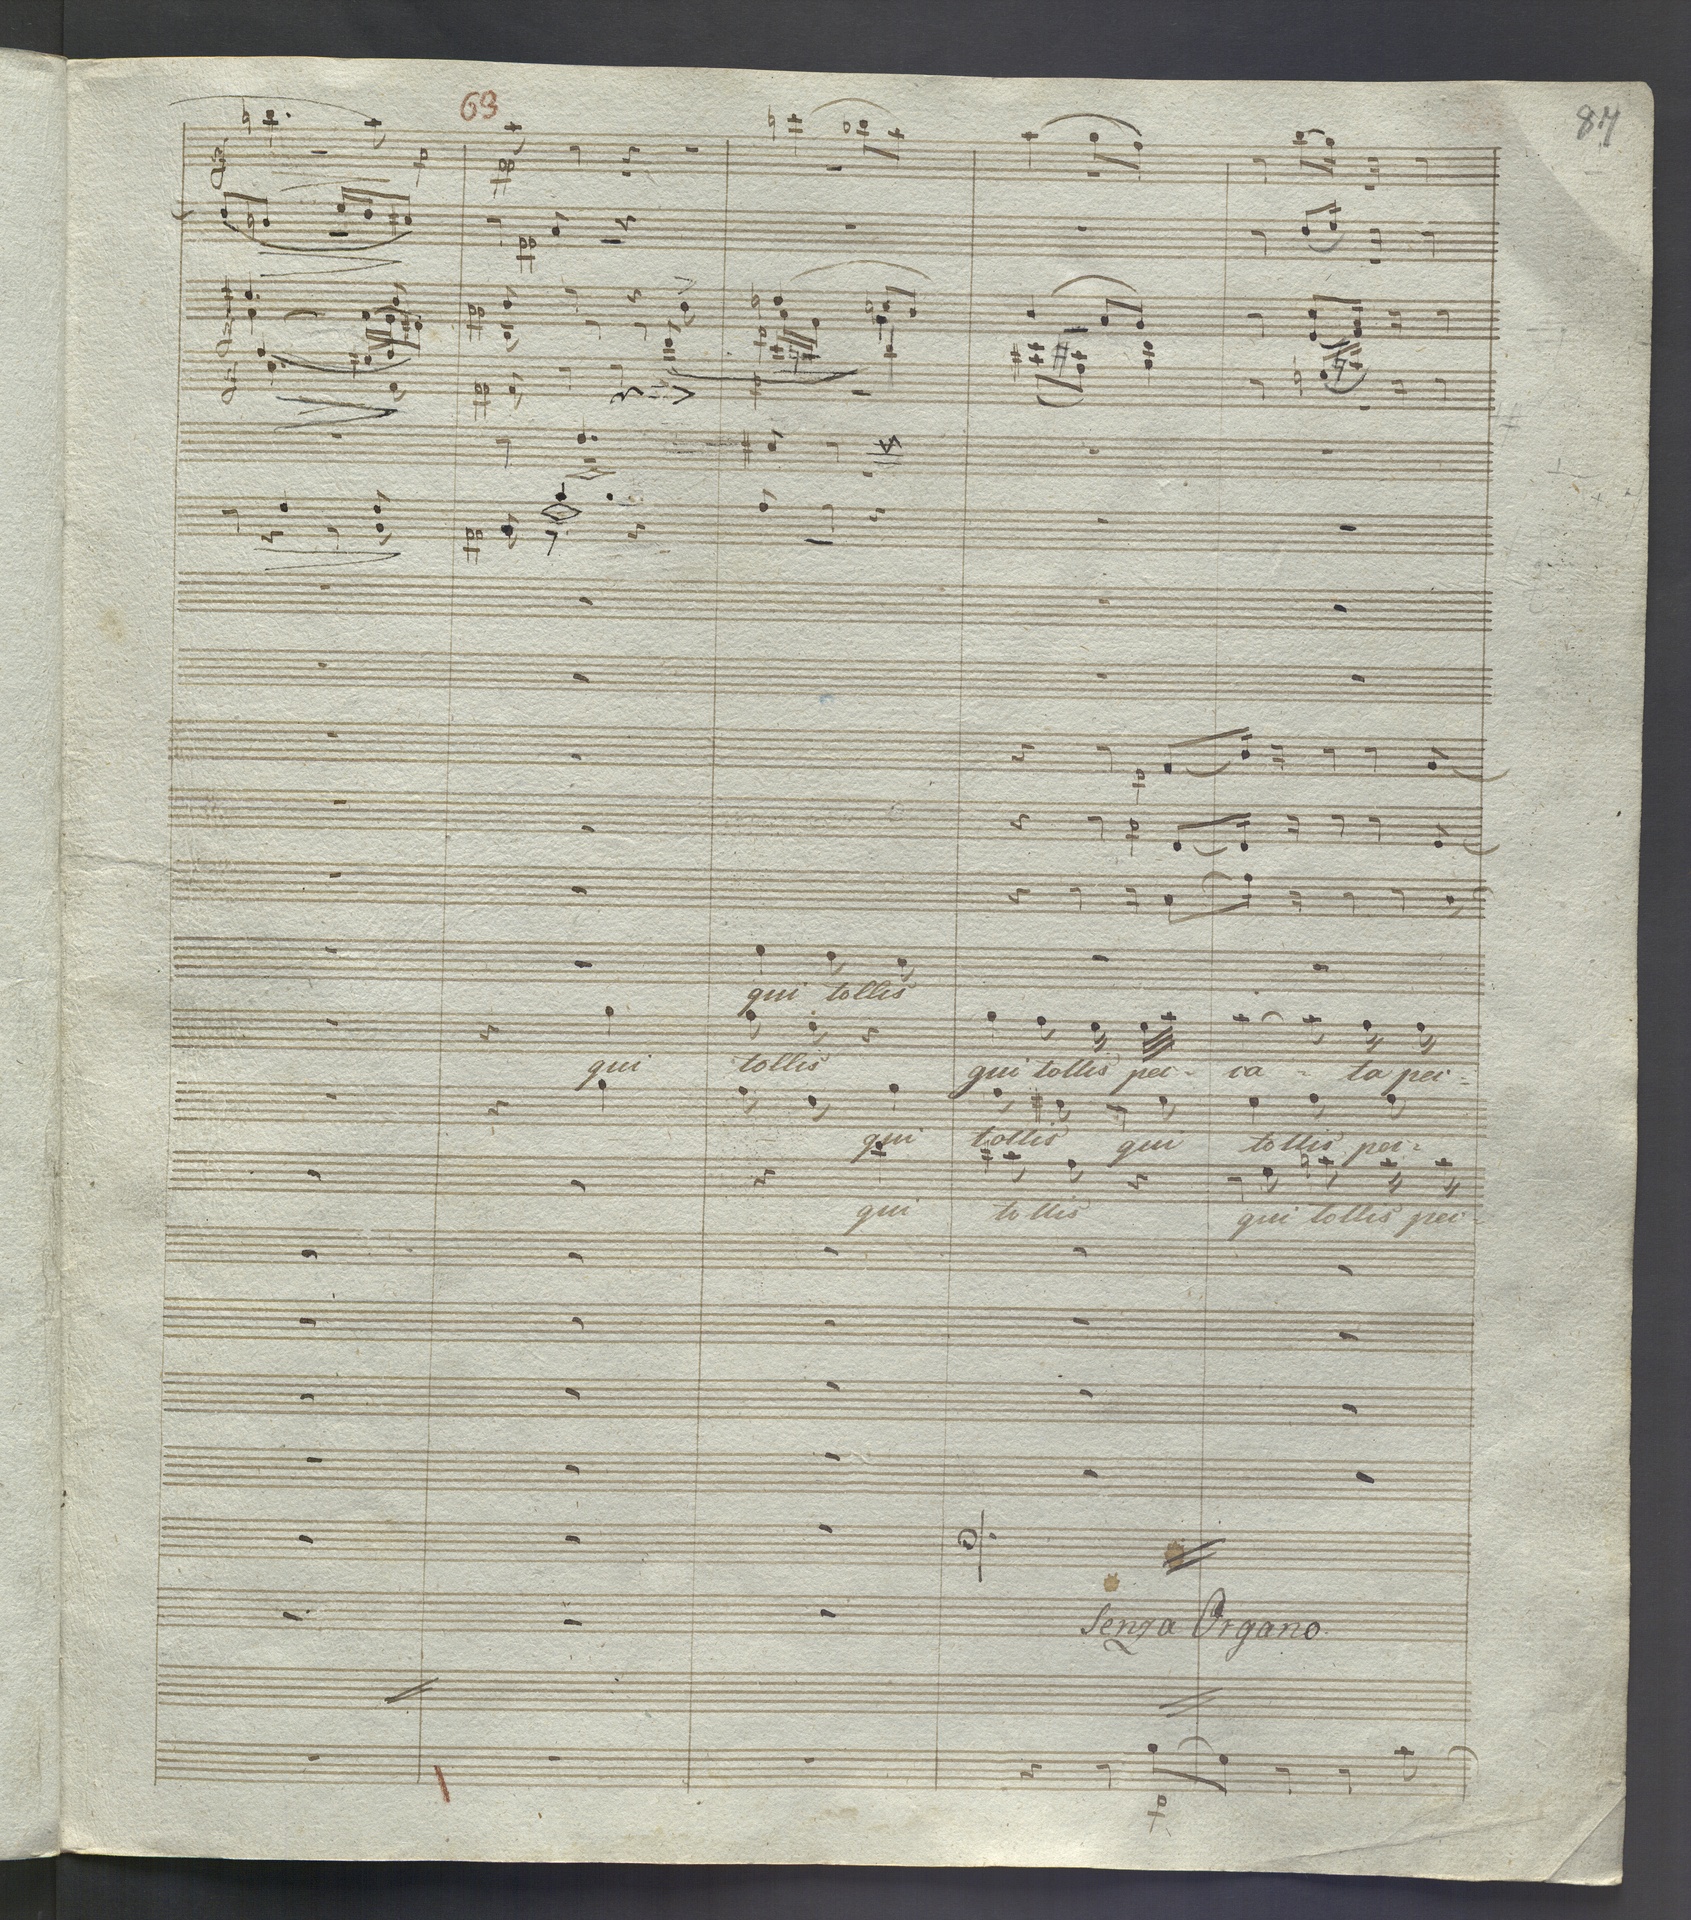 69
87
qui tollis
qui tollis qui tollis pec- ca - ta pec-
qui tollis qui tollis pec-
qui tollis qui tollis pec-
Senza Organo.
p